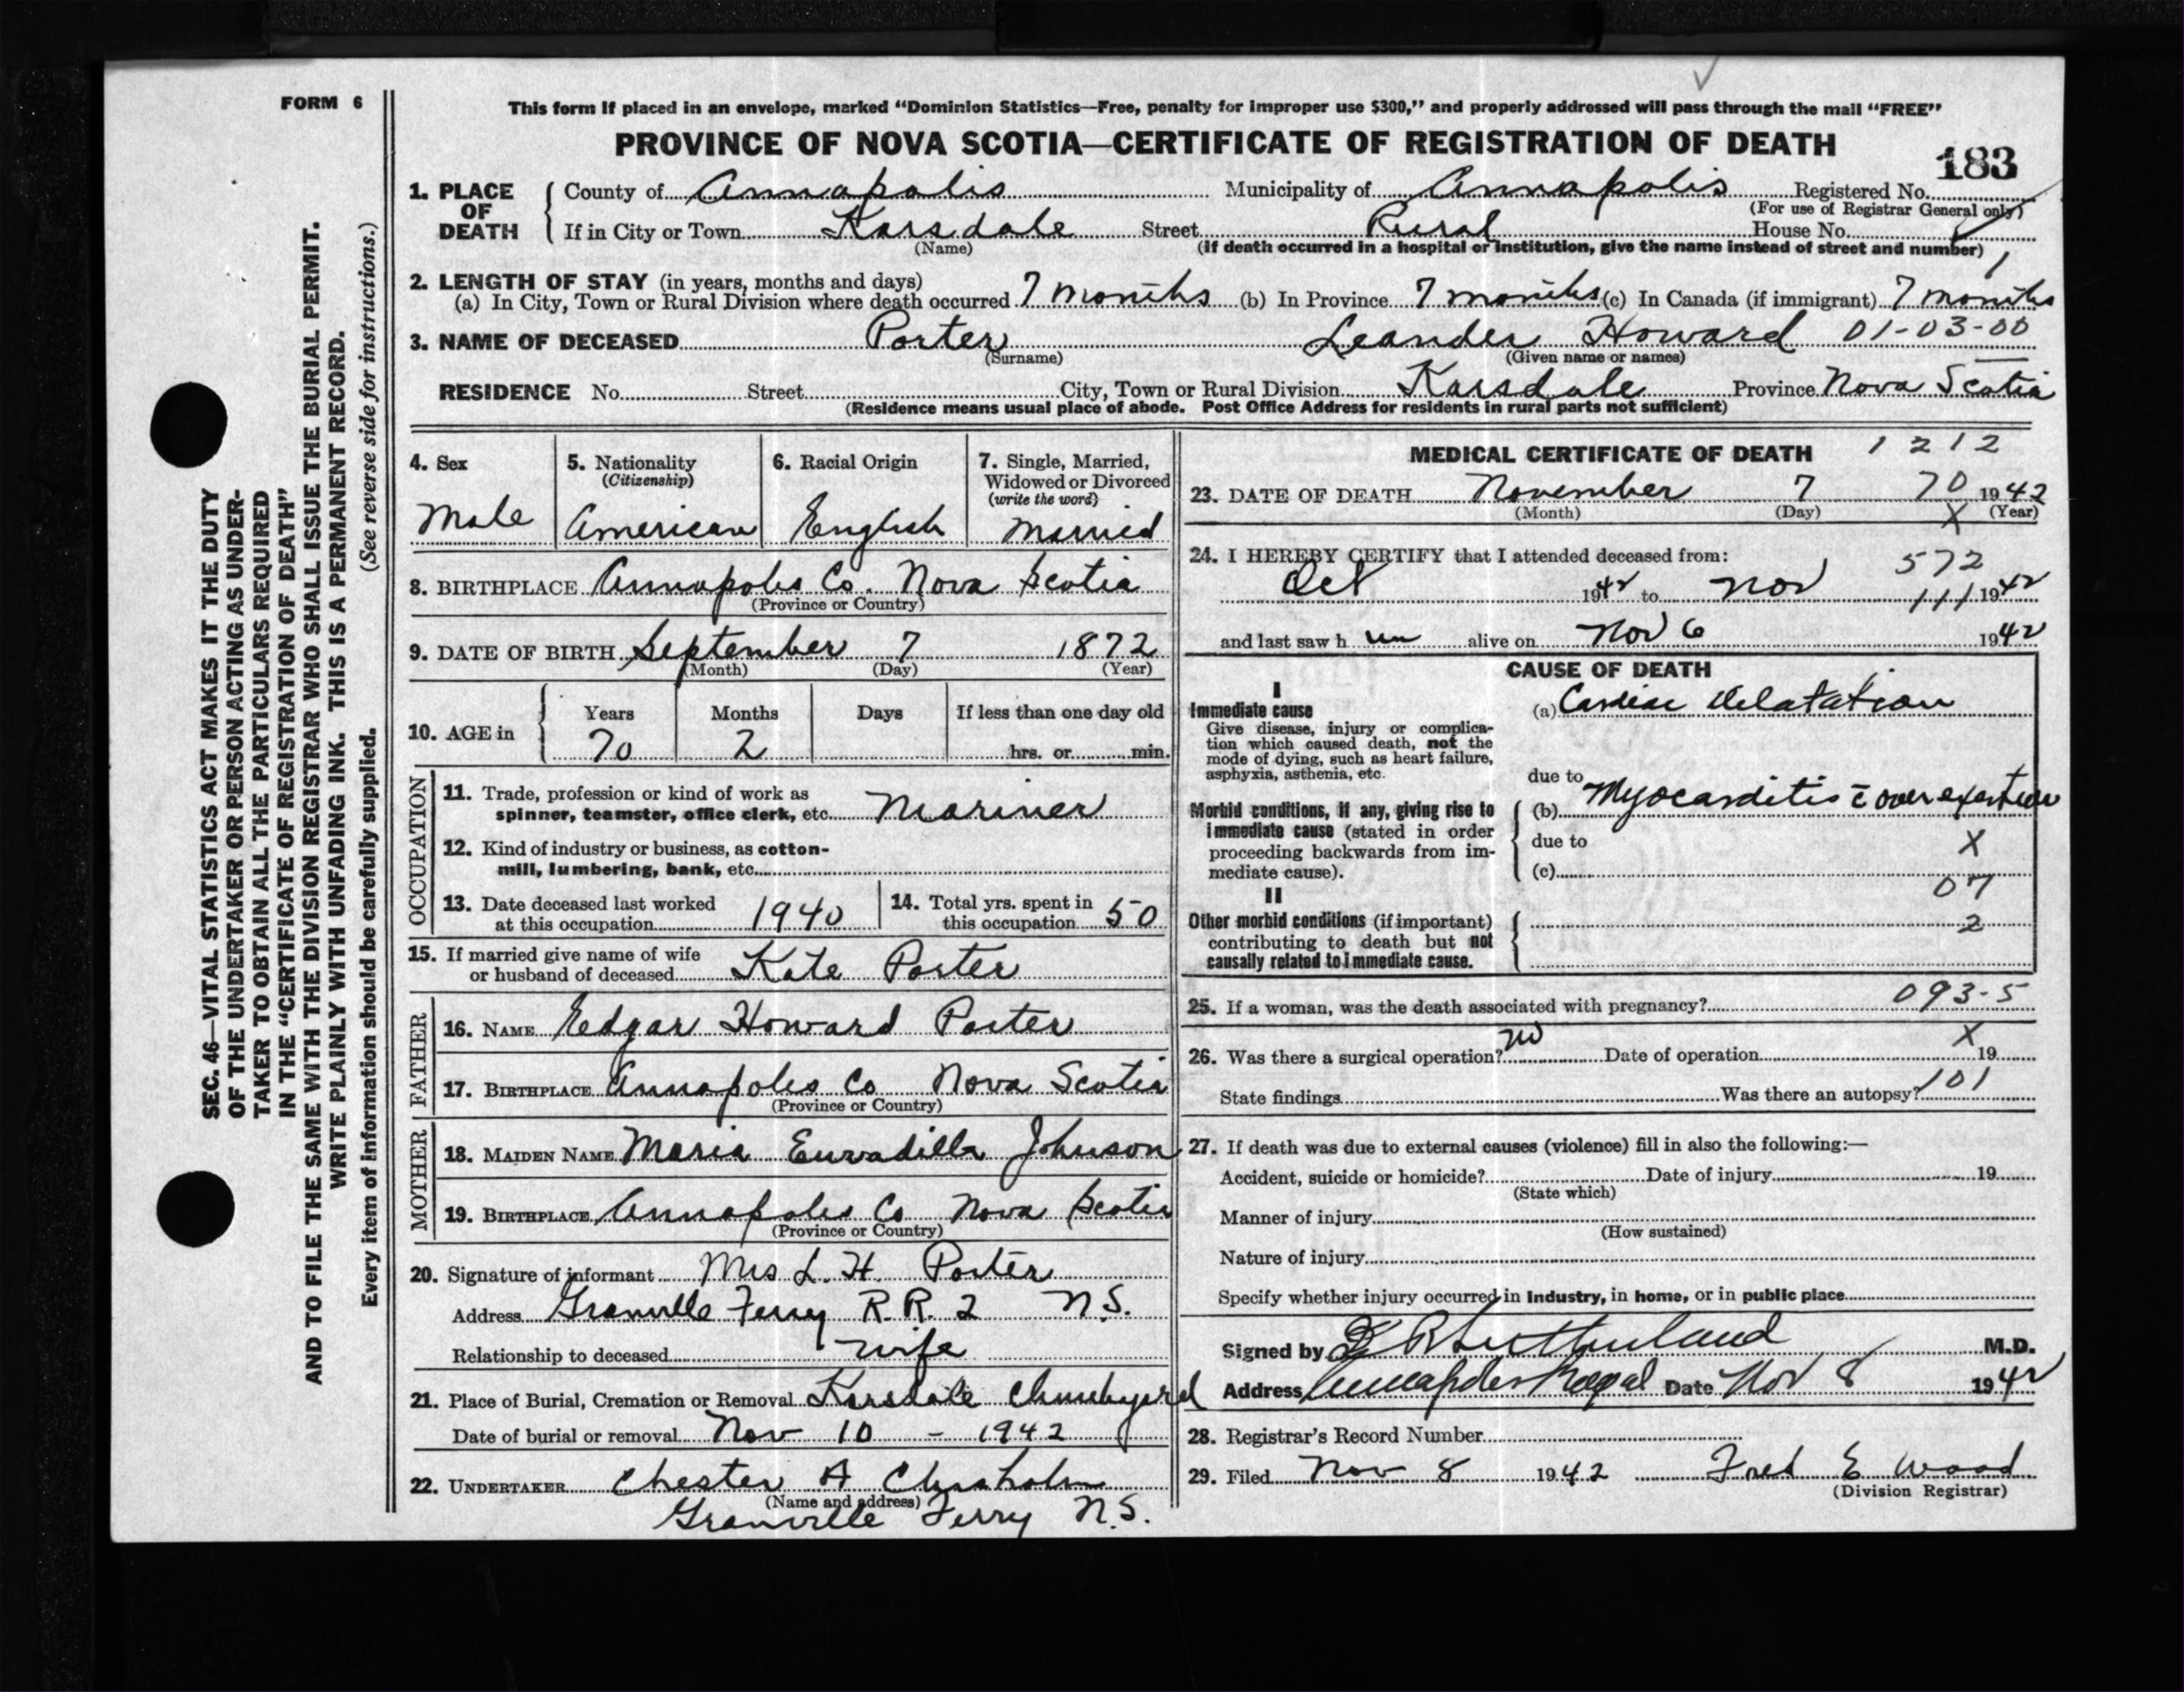 FORM 6
This form if placed in an envelope, marked “Dominion Statistics—Free, penalty for improper use $300,” and properly addressed will pass through the mail “FREE”
PROVINCE OF NOVA SCOTIA—CERTIFICATE OF REGISTRATION OF DEATH
183
1. PLACE OF DEATH
County of Annapolis Municipality of Annapolis Registered No.
(For use of Registrar General only)
If in City or Town Karsdale Street Rural House No.
(Name) (If death occurred in a hospital or institution, give the name instead of street and number)
1
2. LENGTH OF STAY (in years, months and days)
(a) In City, Town or Rural Division where death occurred 7 months (b) In Province 7 months (c) In Canada (if immigrant) 7 months
3. NAME OF DECEASED Porter Leander Howard 01-03-00
(Surname) (Given name or names)
RESIDENCE No. Street City, Town or Rural Division Karsdale Province Nova Scotia
(Residence means usual place of abode. Post Office Address for residents in rural parts not sufficient)
4. Sex
Male
5. Nationality
(Citizenship)
American
6. Racial Origin
English
7. Single, Married,
Widowed or Divorced
(write the word)
Married
8. BIRTHPLACE Annapolis Co. Nova Scotia
(Province or Country)
9. DATE OF BIRTH September 7 1872
(Month) (Day) (Year)
10. AGE in
Years Months Days If less than one day old
70 2 hrs. or min.
OCCUPATION
11. Trade, profession or kind of work as
spinner, teamster, office clerk, etc. Mariner
12. Kind of industry or business, as cotton-
mill, lumbering, bank, etc.
13. Date deceased last worked
at this occupation 1940
14. Total yrs. spent in
this occupation 50
15. If married give name of wife
or husband of deceased Kate Porter
FATHER
16. NAME Edgar Howard Porter
17. BIRTHPLACE Annapolis Co Nova Scotia
(Province or Country)
MOTHER
18. MAIDEN NAME Maria Euvadilla Johnson
19. BIRTHPLACE Annapolis Co Nova Scotia
(Province or Country)
20. Signature of informant Mrs L. H. Porter
Address Granville Ferry R.R. 2 N.S.
Relationship to deceased wife
21. Place of Burial, Cremation or Removal Karsdale Churchyard
Date of burial or removal Nov 10 - 1942
22. UNDERTAKER Chester A Chisholm
(Name and address)
Granville Ferry N.S.
MEDICAL CERTIFICATE OF DEATH 1212
23. DATE OF DEATH November 7 70 1942
(Month) (Day) X (Year)
24. I HEREBY CERTIFY that I attended deceased from:
572
Oct 1942 to Nov 111 1942
and last saw h im alive on Nov 6 1942
CAUSE OF DEATH
I
Immediate cause
Give disease, injury or complica-
tion which caused death, not the
mode of dying, such as heart failure,
asphyxia, asthenia, etc.
(a) Cardiac Delatation
due to
Morbid conditions, if any, giving rise to
immediate cause (stated in order
proceeding backwards from im-
mediate cause).
(b) Myocarditis c̄ over exertion
due to X
(c)
07
II
Other morbid conditions (if important)
contributing to death but not
causally related to immediate cause.
2
25. If a woman, was the death associated with pregnancy? 093-5
26. Was there a surgical operation? No Date of operation X 19
State findings Was there an autopsy? 101
27. If death was due to external causes (violence) fill in also the following:—
Accident, suicide or homicide? Date of injury 19
(State which)
Manner of injury
(How sustained)
Nature of injury
Specify whether injury occurred in industry, in home, or in public place
Signed by Sutherland M.D.
Address Annapolis Royal Date Nov 8 1942
28. Registrar's Record Number
29. Filed Nov 8 1942 Fred E Wood
(Division Registrar)
SEC. 46—VITAL STATISTICS ACT MAKES IT THE DUTY
OF THE UNDERTAKER OR PERSON ACTING AS UNDER-
TAKER TO OBTAIN ALL THE PARTICULARS REQUIRED
IN THE “CERTIFICATE OF REGISTRATION OF DEATH”
AND TO FILE THE SAME WITH THE DIVISION REGISTRAR WHO SHALL ISSUE THE BURIAL PERMIT.
WRITE PLAINLY WITH UNFADING INK. THIS IS A PERMANENT RECORD.
Every item of information should be carefully supplied. (See reverse side for instructions.)